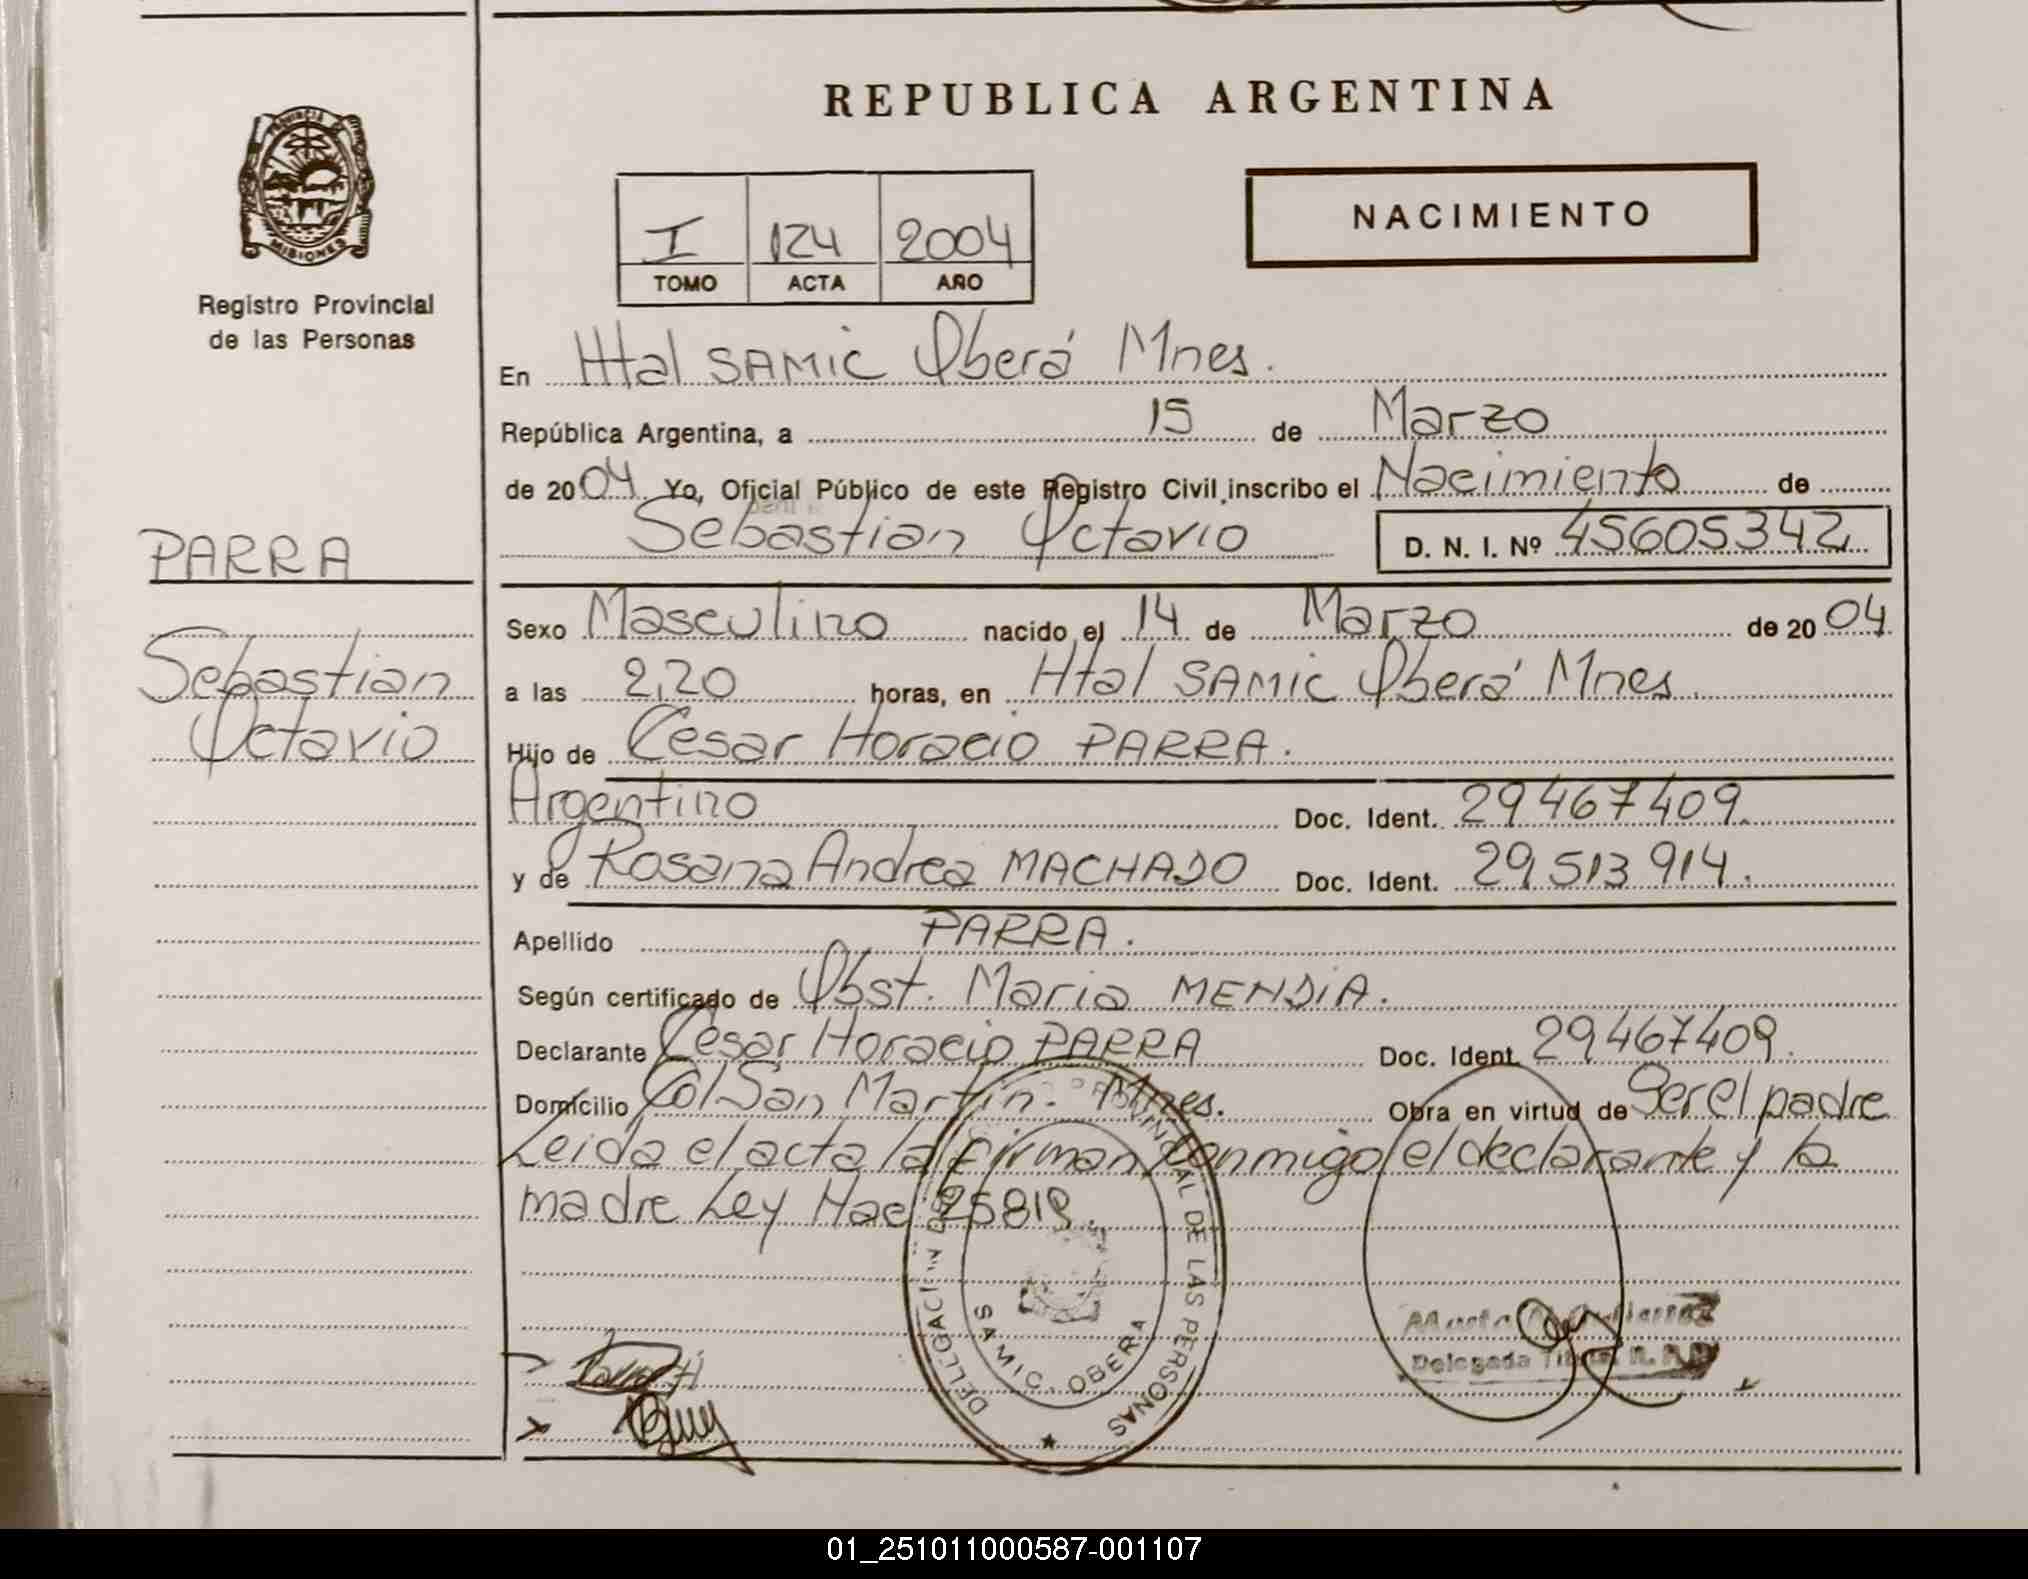 REPUBLICA ARGENTINA
PROVINCIA DE
MISIONES
Registro Provincial
de las Personas
NACIMIENTO
I 124 2004
TOMO ACTA AÑO
En Htal SAMIC Oberá Mnes.
República Argentina, a 15 de Marzo
de 2004 Yo, Oficial Público de este Registro Civil inscribo el Nacimiento de
Sebastian Octavio D. N. I. Nº 45605342
PARRA
Sebastian
Octavio
Sexo Masculino nacido el 14 de Marzo de 2004
a las 2,20 horas, en Htal SAMIC Oberá Mnes.
Hijo de Cesar Horacio PARRA.
Argentino Doc. Ident. 29467409.
y de Rosana Andrea MACHADO Doc. Ident. 29.513 914.
Apellido PARRA.
Según certificado de Obst. Maria MENDIA.
Declarante Cesar Horacio PARRA Doc. Ident. 29.467409.
Domicilio Col San Martin. Mnes. Obra en virtud de Ser el padre
Leida el acta la firman conmigo el declarante y la
madre Ley Nac 25819.
DELEGACION DEL REGISTRO PROVINCIAL DE LAS PERSONAS
SAMIC, OBERA
Delegada Titular R. P. P.
Parra H
01_251011000587-001107